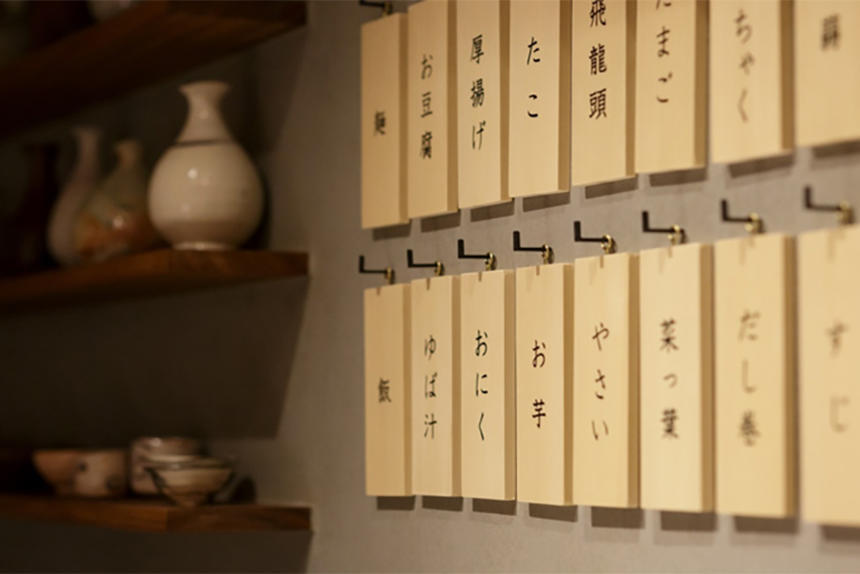 ちゃく
たまご
飛龍頭
たこ
厚揚げ
お豆腐
麺
すじ
だし巻
菜っ葉
やさい
お芋
おにく
ゆば汁
飯